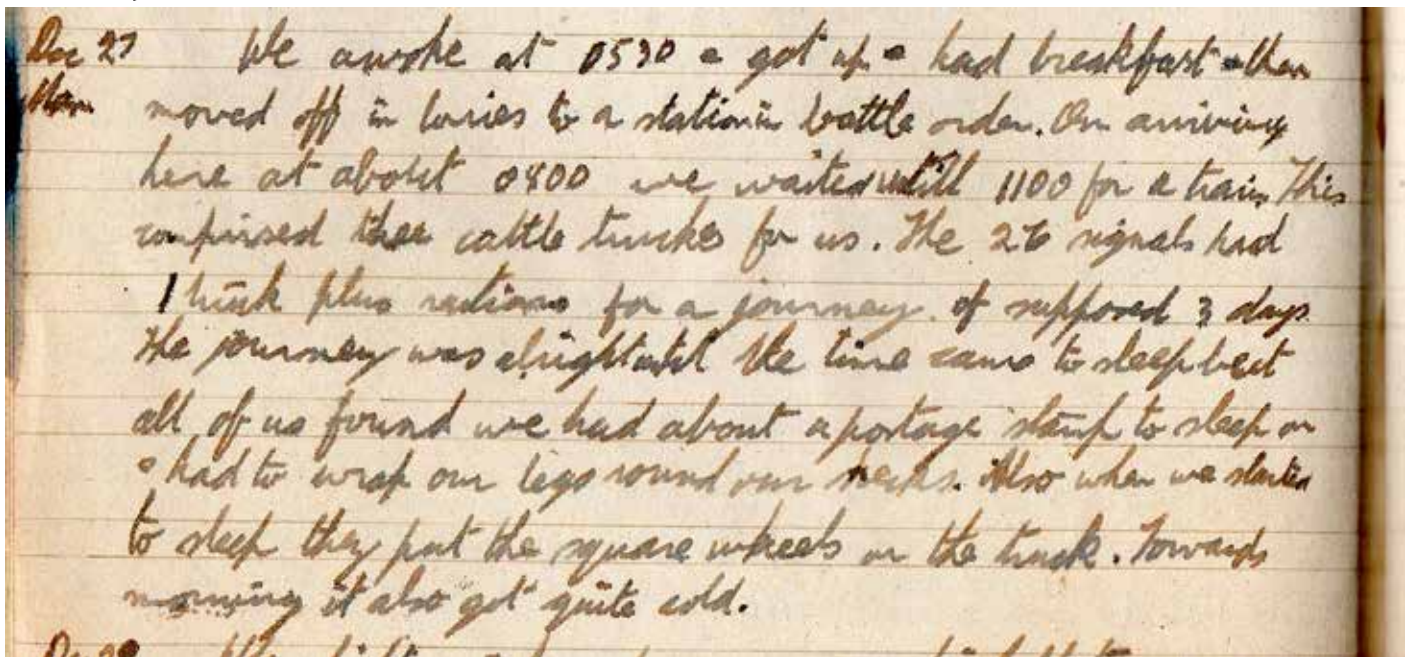 Dec 27 We awoke at 0530 & got up & had breakfast & then
Mon moved off in lorries to a station in battle order. On arriving
here at about 0800 we waited untill 1100 for a train. This
comprised three cattle trucks for us. The 26 signals had
1 truck plus rations for a journey of supposed 3 days.
The journey was alright until the time came to sleep but
all of us found we had about a postage stamp to sleep on
& had to wrap our legs round our necks. Also when we started
to sleep they put the square wheels on the truck. Towards
morning it also got quite cold.